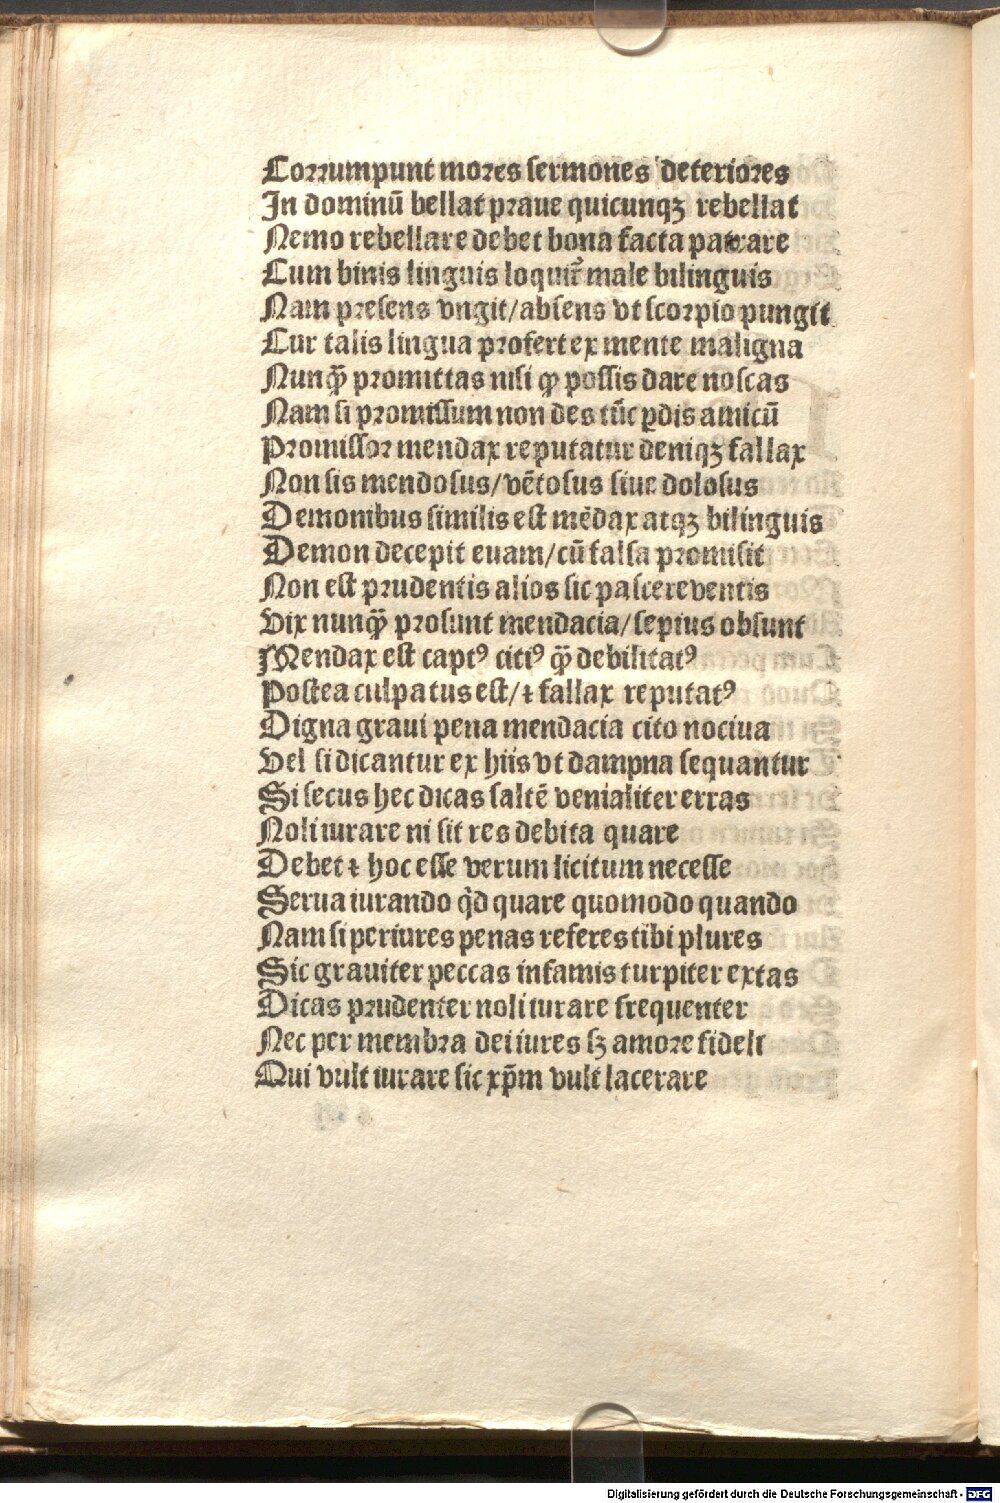 Corrumpunt mores sermones deteriores
In dominū bellat praue quicunqꝫ rebellat
Nemo rebellare debet bona facta patrare
Cum binis linguis loquit᷑ male bilinguis
Nam presens vngit/absens vt scorpio pungit
Cur talis lingua profert ex mente maligna
Nunꝙ̄ promittas nisi ꝙ possis dare noscas
Nam si promissum non des tūc ꝑdis amicū
Promissor mendax reputatur deniqꝫ fallax
Non sis mendosus/vētosus siue dolosus
Demonibus similis est mēdax atqꝫ bilinguis
Demon decepit euam/cū falsa promisit
Non est prudentis alios sic pascere ventis
Vix nunꝙ̄ prosunt mendacia/sepius obsunt
Mendax est captꝰ citiꝰ ꝙ̄ debilitatꝰ
Postea culpatus est/⁊ fallax reputatꝰ
Digna graui pena mendacia cito nociua
Vel si dicantur ex hiis vt dampna sequantur
Si secus hec dicas saltē venialiter erras
Noli iurare ni sit res debita quare
Debet ⁊ hoc esse verum licitum necesse
Serua iurando q̄d quare quomodo quando
Nam si periures penas referes tibi plures
Sic grauiter peccas infamis turpiter extas
Dicas prudenter noli iurare frequenter
Nec per membra dei iures sꝫ amore fideli
Qui vult iurare sic xp̄m vult lacerare
Digitalisierung gefördert durch die Deutsche Forschungsgemeinschaft - DFG